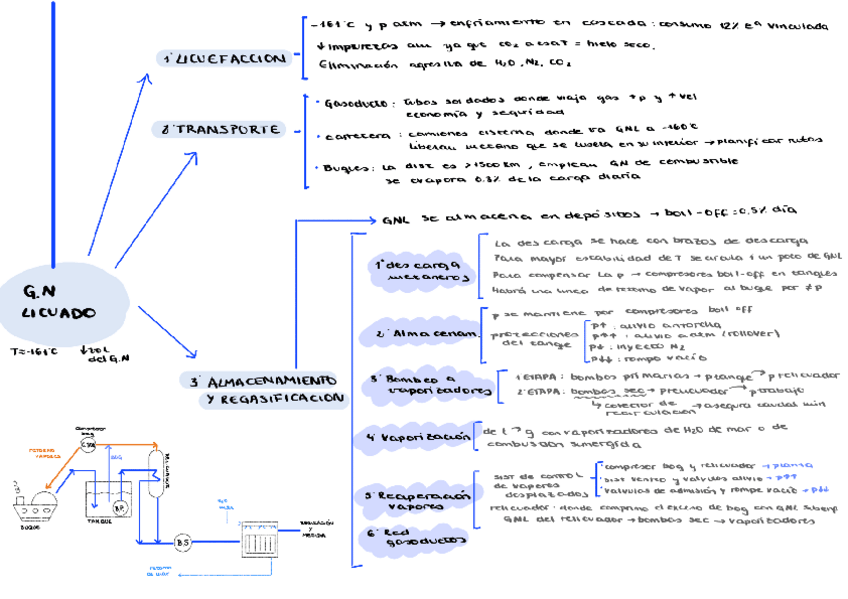 G.N
LICUADO
T=-161°C ↓VOL
del G.N
1° LICUEFACCION
-161°C y p atm → enfriamiento en cascada : consumo 12% Eª vinculada
↓ Impurezas aun ya que CO2 a esa T = hielo seco.
Eliminación agresiva de H2O, N2, CO2
2° TRANSPORTE
• Gasoducto : Tubos soldados donde viaja gas ↑p y ↑vel
economía y seguridad
• carretera : camiones cisterna donde va GNL a -160°C
liberan metano que se libera en su interior → planificar rutas
• Buques : La dist es >1500 km , emplean GN de combustible
se evapora 0.3% de la carga diaria
3° ALMACENAMIENTO
Y REGASIFICACION
GNL se almacena en depósitos → boil-OFF = 0,5% día
1° descarga
metaneros
La descarga se hace con brazos de descarga
Para mayor estabilidad de T se circula 1 un poco de GNL
Para compensar la p → compresores boil-off en tanques
Habrá una linea de retorno de vapor al buque por ≠p
2° Almacenam.
p se mantiene por compresores boil off
protecciones
del tanque
p↑ : alivio antorcha
p↑↑ : alivio a atm (rollover)
p↓ : inyecta N2
p↓↓ : rompe vacío
3° Bombeo a
vaporizadores
1 ETAPA : bombas primarias → ptanque → prelicuador
2° ETAPA : bombas sec → prelicuador → ptrabajo
↳ colector de → asegura caudal min
recirculación
4° Vaporización
de l → g con vaporizadores de H2O de mar o de
combustión sumergida
5° Recuperación
vapores
sist de control
de vapores
desplazados
• compresor bog y relicuador → planta
• sist venteo y valvulas alivio → p↑↑
• valvulas de admisión y rompe vacío → p↓↓
relicuador : donde comprime el exceso de bog con GNL subenf
GNL del relicuador → bombas sec → vaporizadores
6° Red
gasoductos
BOG
TANQUE
B.P
BUQUE
B.S